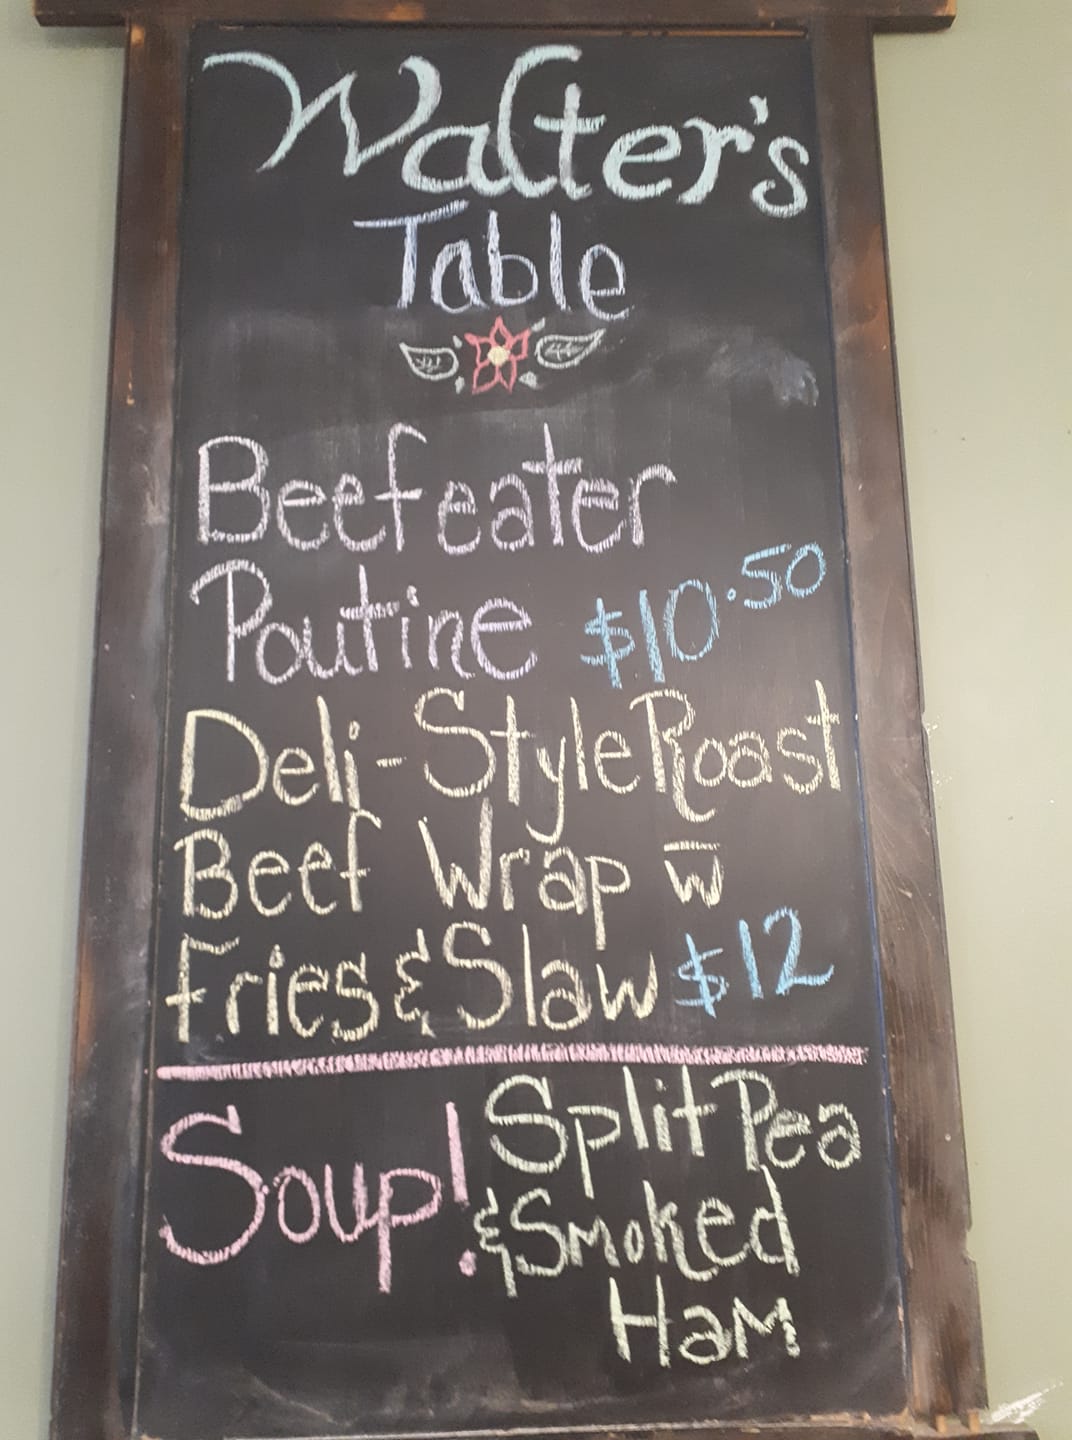 Walter's
Table
Beefeater
Poutine $10.50
Deli-Style Roast
Beef Wrap w̄
Fries & Slaw $12
Soup! Split Pea
& Smoked
Ham